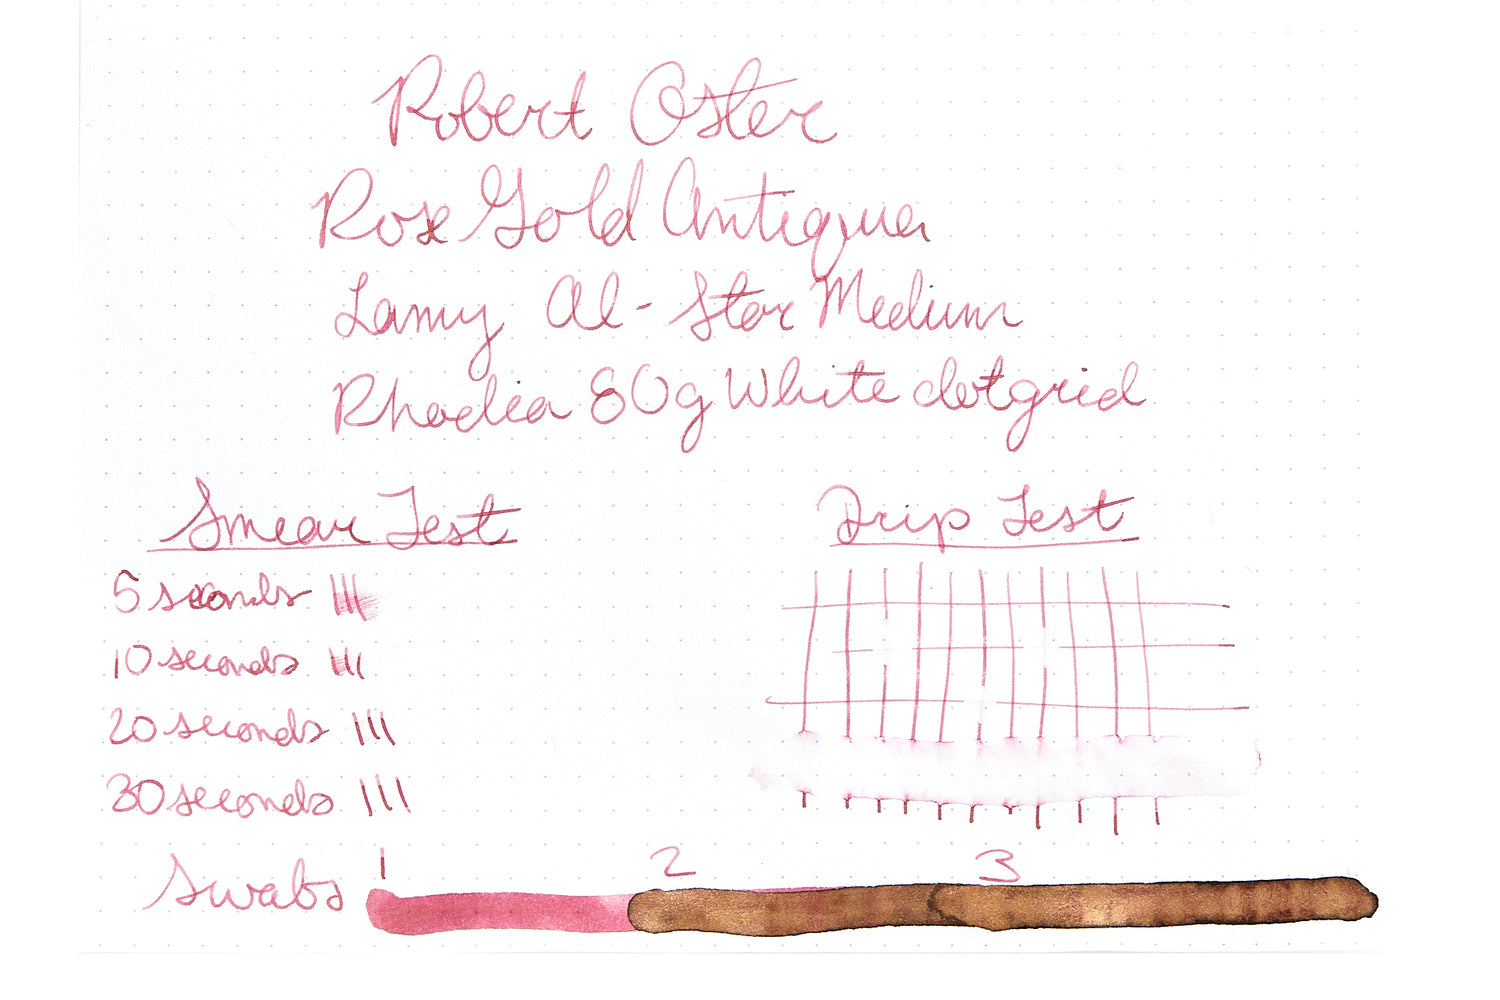 Robert Oster
Rose Gold Antiqua
Lamy Al-Star Medium
Rhodia 80g White dotgrid
Smear Test
5 seconds
10 seconds
20 seconds
30 seconds
Drip Test
Swabs 1 2 3